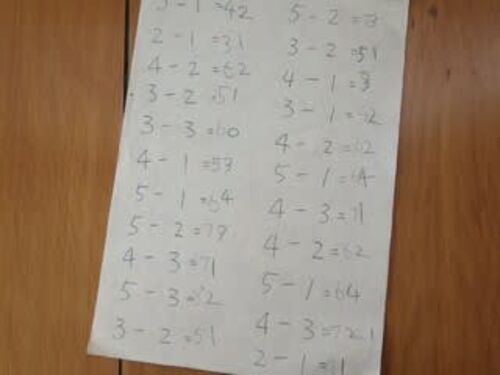 3 - 1 =42
2 - 1 =31
4 - 2 =62
3 - 2 =51
3 - 3 =60
4 - 1 =53
5 - 1 =64
5 - 2 =
4 - 3 =71
5 - 3 =
3 - 2 =51
5 - 2 =
3 - 2 =51
4 - 1 =
3 - 1 =
4 - 2 =62
5 - 1 =64
4 - 3 =71
4 - 2 =62
5 - 1 =64
4 - 3 =
2 - 1 =